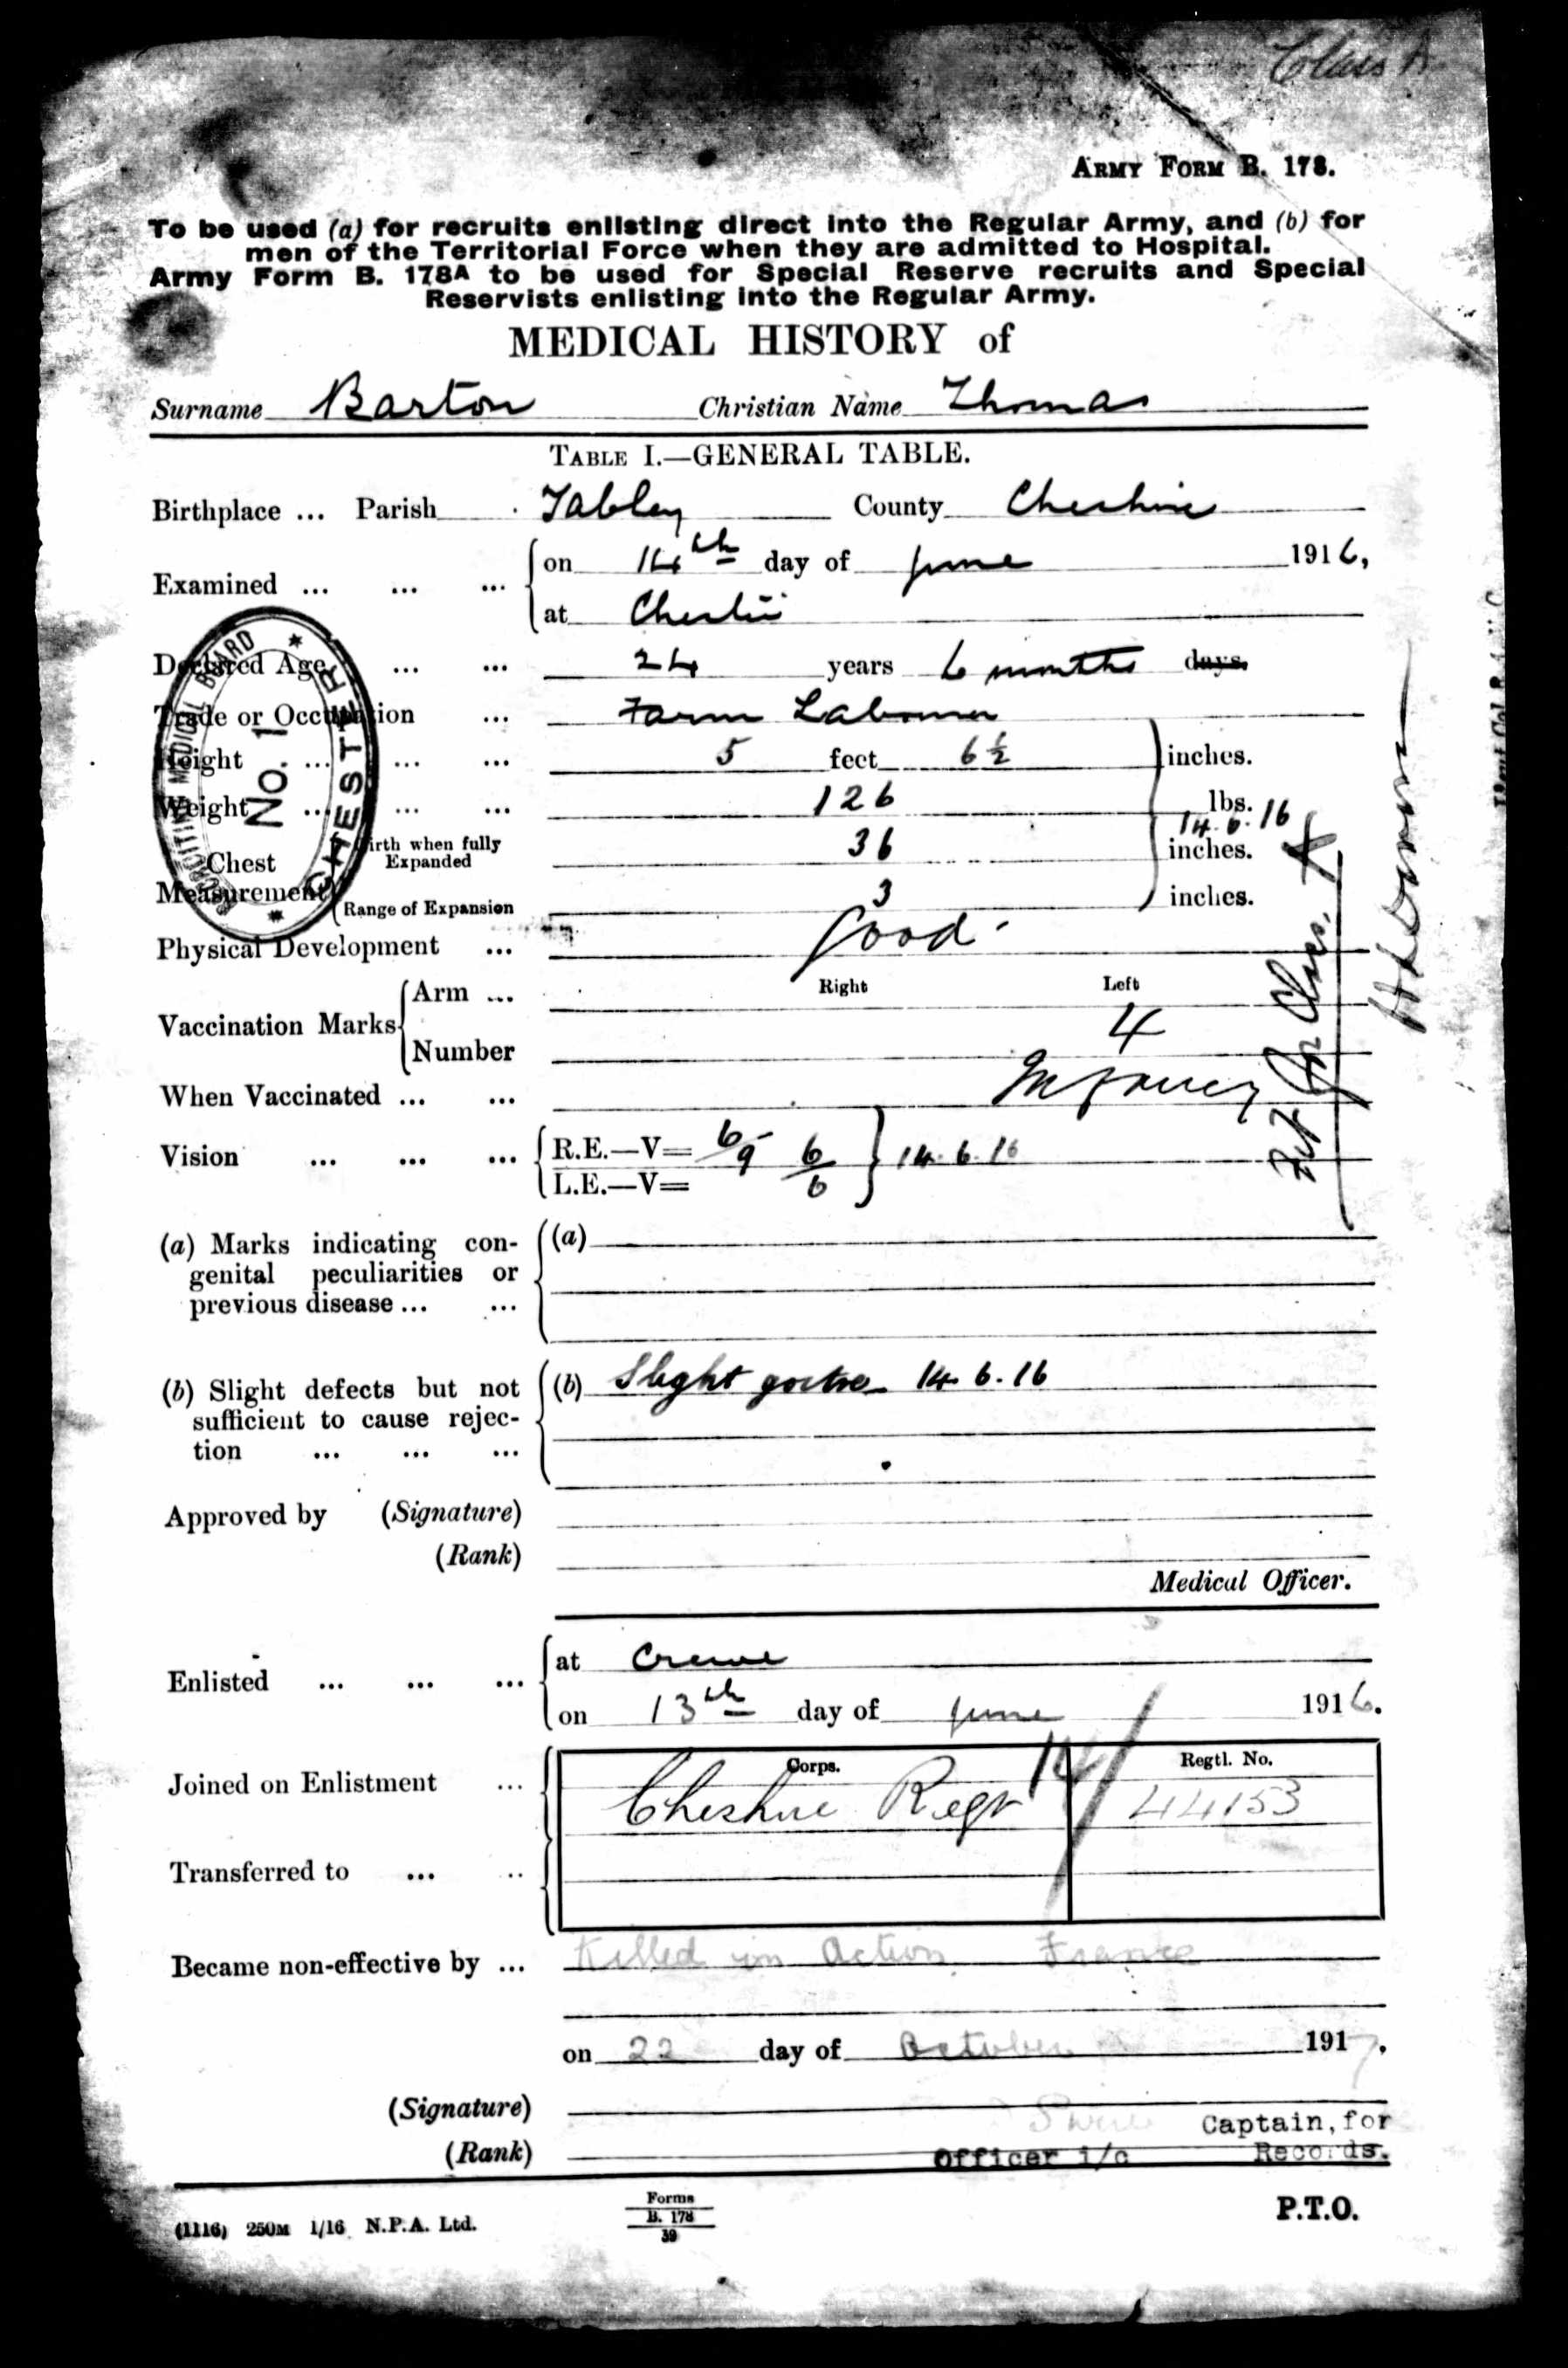 Class A
ARMY FORM B. 178.
To be used (a) for recruits enlisting direct into the Regular Army, and (b) for
men of the Territorial Force when they are admitted to Hospital.
Army Form B. 178A to be used for Special Reserve recruits and Special
Reservists enlisting into the Regular Army.
MEDICAL HISTORY of
Surname Barton Christian Name Thomas
TABLE I.—GENERAL TABLE.
Birthplace ... Parish Tabley County Cheshire
Examined ... ... ... on 14th day of June 1916,
at Chester
Declared Age ... ... 24 years 6 months days.
Trade or Occupation ... Farm Labourer
Height ... ... ... 5 feet 6 1/2 inches.
Weight ... ... ... 126 lbs.
14.6.16
Chest Measurement Girth when fully Expanded 36 inches.
Range of Expansion 3 inches.
RECRUITING MEDICAL BOARD
No. 1
CHESTER
Physical Development ... Good
Right Left
Vaccination Marks Arm ...
Number 4
When Vaccinated ... ... Infancy
Fit for Class. A
Vision ... ... ... R.E.—V= 6/9 6/6 14.6.16
L.E.—V=
(a) Marks indicating con- (a)
genital peculiarities or
previous disease ... ...
(b) Slight defects but not (b) Slight goitre 14.6.16
sufficient to cause rejec-
tion ... ... ...
Approved by (Signature)
(Rank)
Medical Officer.
Enlisted ... ... ... at Crewe
on 13th day of June 1916.
Corps. Regtl. No.
Joined on Enlistment ... Cheshire Regt 14 44153
Transferred to ... ..
Became non-effective by ... Killed in Action France
on 22 day of October 1917.
(Signature)
Captain, for
(Rank) Officer i/c Records.
(1116) 250M 1/16 N.P.A. Ltd.
Forms
B. 178
39
P.T.O.